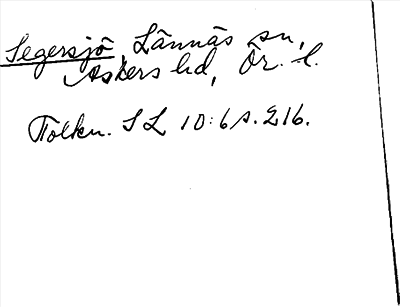 Segersjö, Lännäs sn,
Askers hd, Ör. l.
Tolkn. SL 10:6 s. 216.